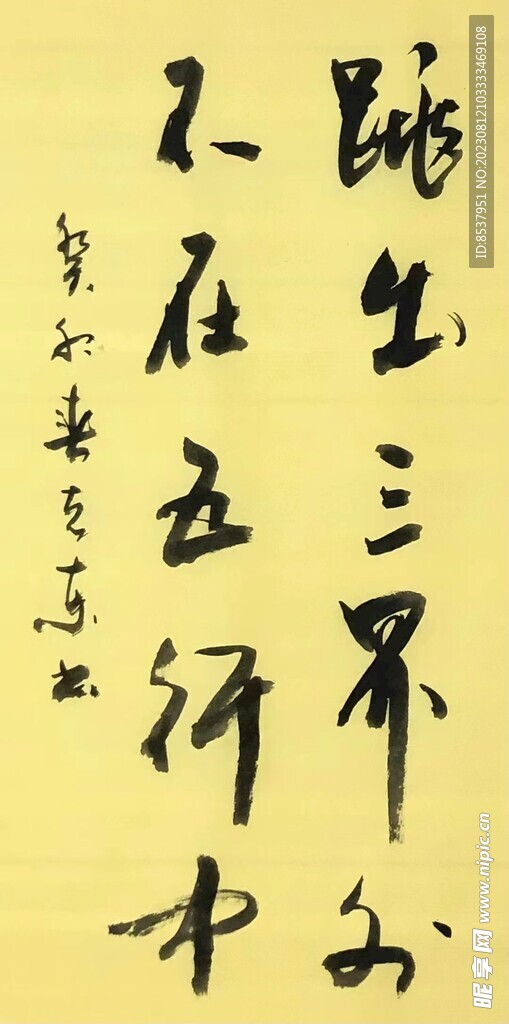 跳出三界外
不在五行中
癸卯春克东书
ID:8537951 NO:20230812103333469108
昵享网 www.nipic.cn